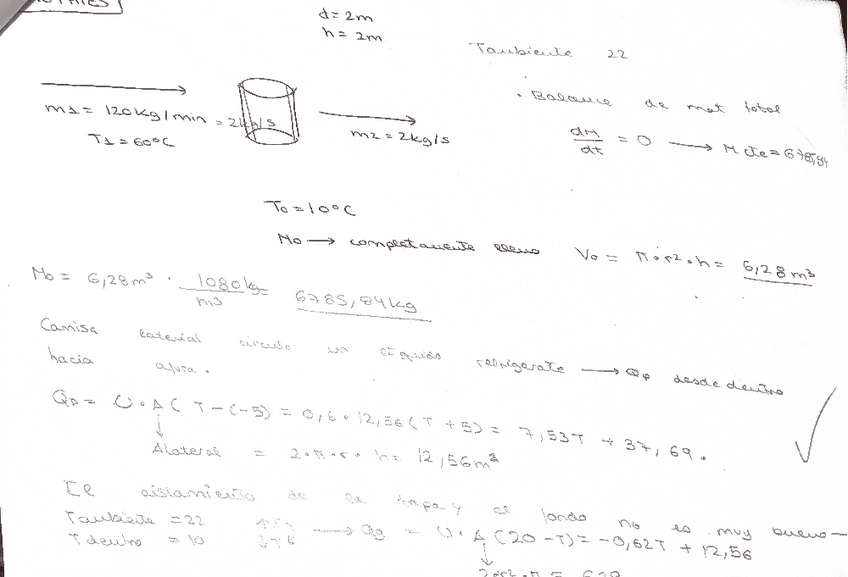 d = 2m
h = 2m
Tambiente 22
m1 = 120kg/min = 2kg/s
T1 = 60°C
m2 = 2kg/s
· Balance de mat total
dM/dt = 0 → M cte = 6785,84
To = 10°C
Mo → completamente lleno Vo = π·r²·h = 6,28m³
Mo = 6,28m³ · 1080kg/m3 = 6785,84kg
Camisa lateral circula un líquido refrigerate → Qp desde dentro
hacia afuera.
Qp = U·A(T-(-5) = 0,6·12,56(T+5) = 7,53T + 37,69.
Alateral = 2·π·r·h = 12,56m²
El aislamiento de la tapa y el fondo no es muy bueno —
Tambiente = 22
Tdentro = 10
→ Qg = U·A(20-T) = -0,62T + 12,56
2·r²·π = 6,28